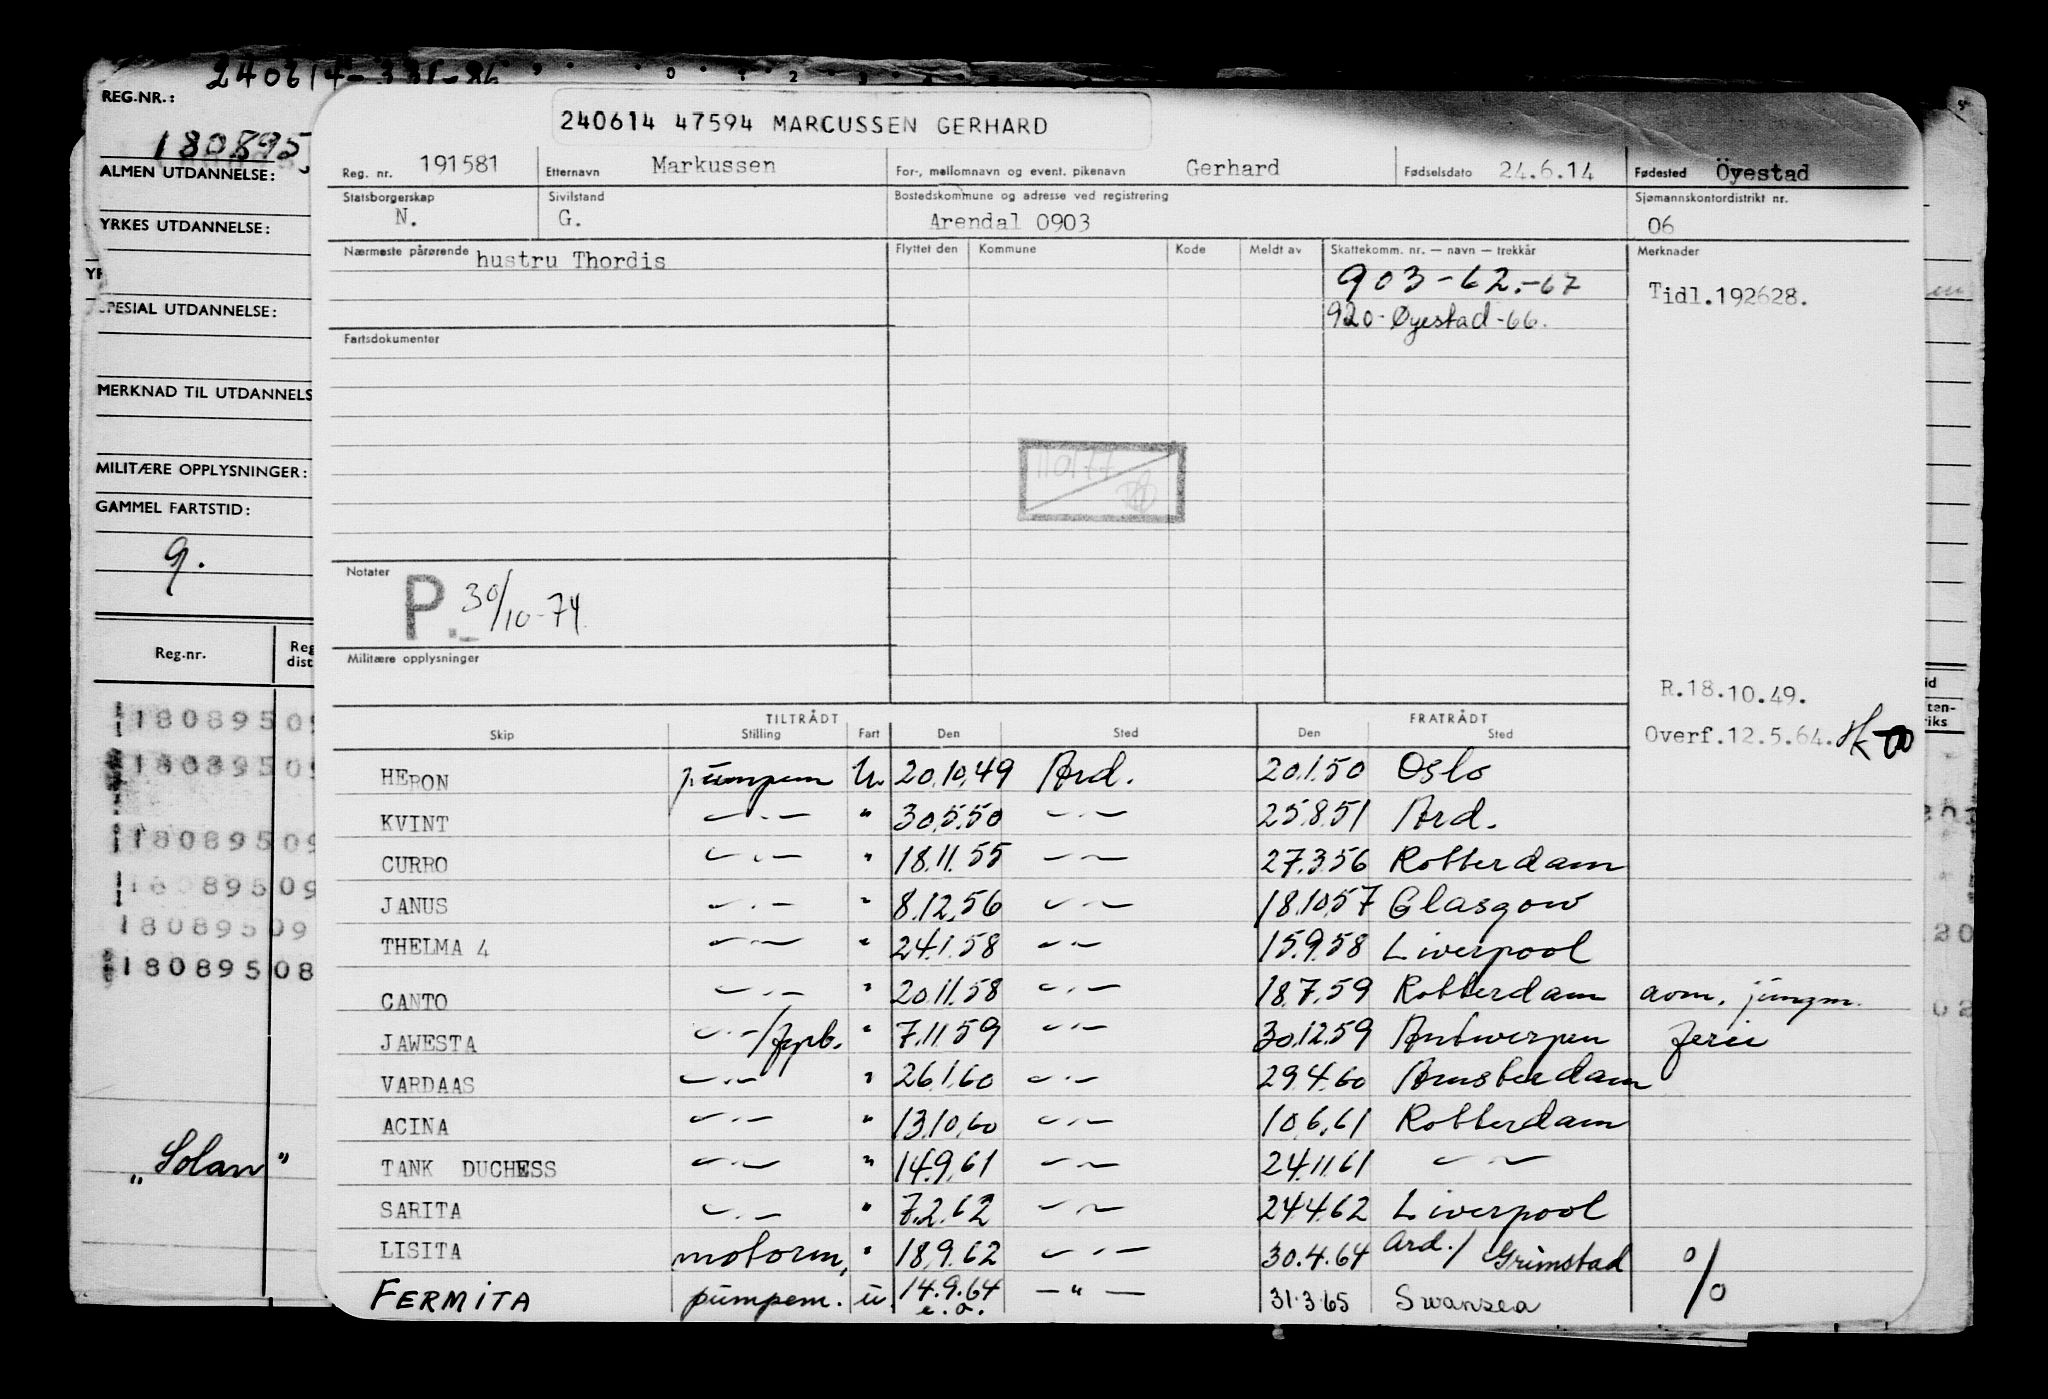 240614-331-86
REG.NR.:
180895
ALMEN UTDANNELSE:
YRKES UTDANNELSE:
SPESIAL UTDANNELSE:
MERKNAD TIL UTDANNELS
MILITÆRE OPPLYSNINGER:
GAMMEL FARTSTID:
g.
Reg.nr. Reg dist
180895 09
180895 09
180895 09
180895 09
180895 09
180895 08
"Solan"
240614 47594 MARCUSSEN GERHARD
Reg. nr. 191581 Etternavn Markussen For-, mellomnavn og event. pikenavn Gerhard Fødselsdato 24.6.14 Fødested Öyestad
Statsborgerskap N. Sivilstand G. Bostedskommune og adresse ved registrering Arendal 0903 Sjømannskontordistrikt nr. 06
Nærmeste pårørende hustru Thordis Flyttet den Kommune Kode Meldt av Skattekomm. nr. — navn — trekkår Merknader
903-62.-67
920-Øyestad-66.
Tidl.192628.
Fartsdokumenter
110177
Notater
P. 30/10-74.
Militære opplysninger
R.18.10.49.
Overf.12.5.64.
TILTRÅDT FRATRÅDT
Skip Stilling Fart Den Sted Den Sted
HERON pumpem U. 20.10.49 Ard. 20.1.50 Oslo
KVINT —·— " 30.5.50 —·— 25.8.51 Ard.
CURRO —·— " 18.11.55 —·— 27.3.56 Rotterdam
JANUS —·— " 8.12.56 —·— 18.10.57 Glasgow
THELMA 4 —·— " 24.1.58 —·— 15.9.58 Liverpool
CANTO —·— " 20.11.58 —·— 18.7.59 Rotterdam aom. jungm.
JAWESTA —·—/fyrb. " 7.11.59 —·— 30.12.59 Antwerpen ferie
VARDAAS —·— " 26.1.60 —·— 29.4.60 Amsterdam
ACINA —·— " 13.10.60 —·— 10.6.61 Rotterdam
TANK DUCHESS —·— " 14.9.61 —·— 24.11.61 —·—
SARITA —·— " 7.2.62 —·— 24.4.62 Liverpool
LISITA motorm. " 18.9.62 —·— 30.4.64 Ard./ Grimstad %
FERMITA pumpem. u. 14.9.64 e.o. —"— 31.3.65 Swansea